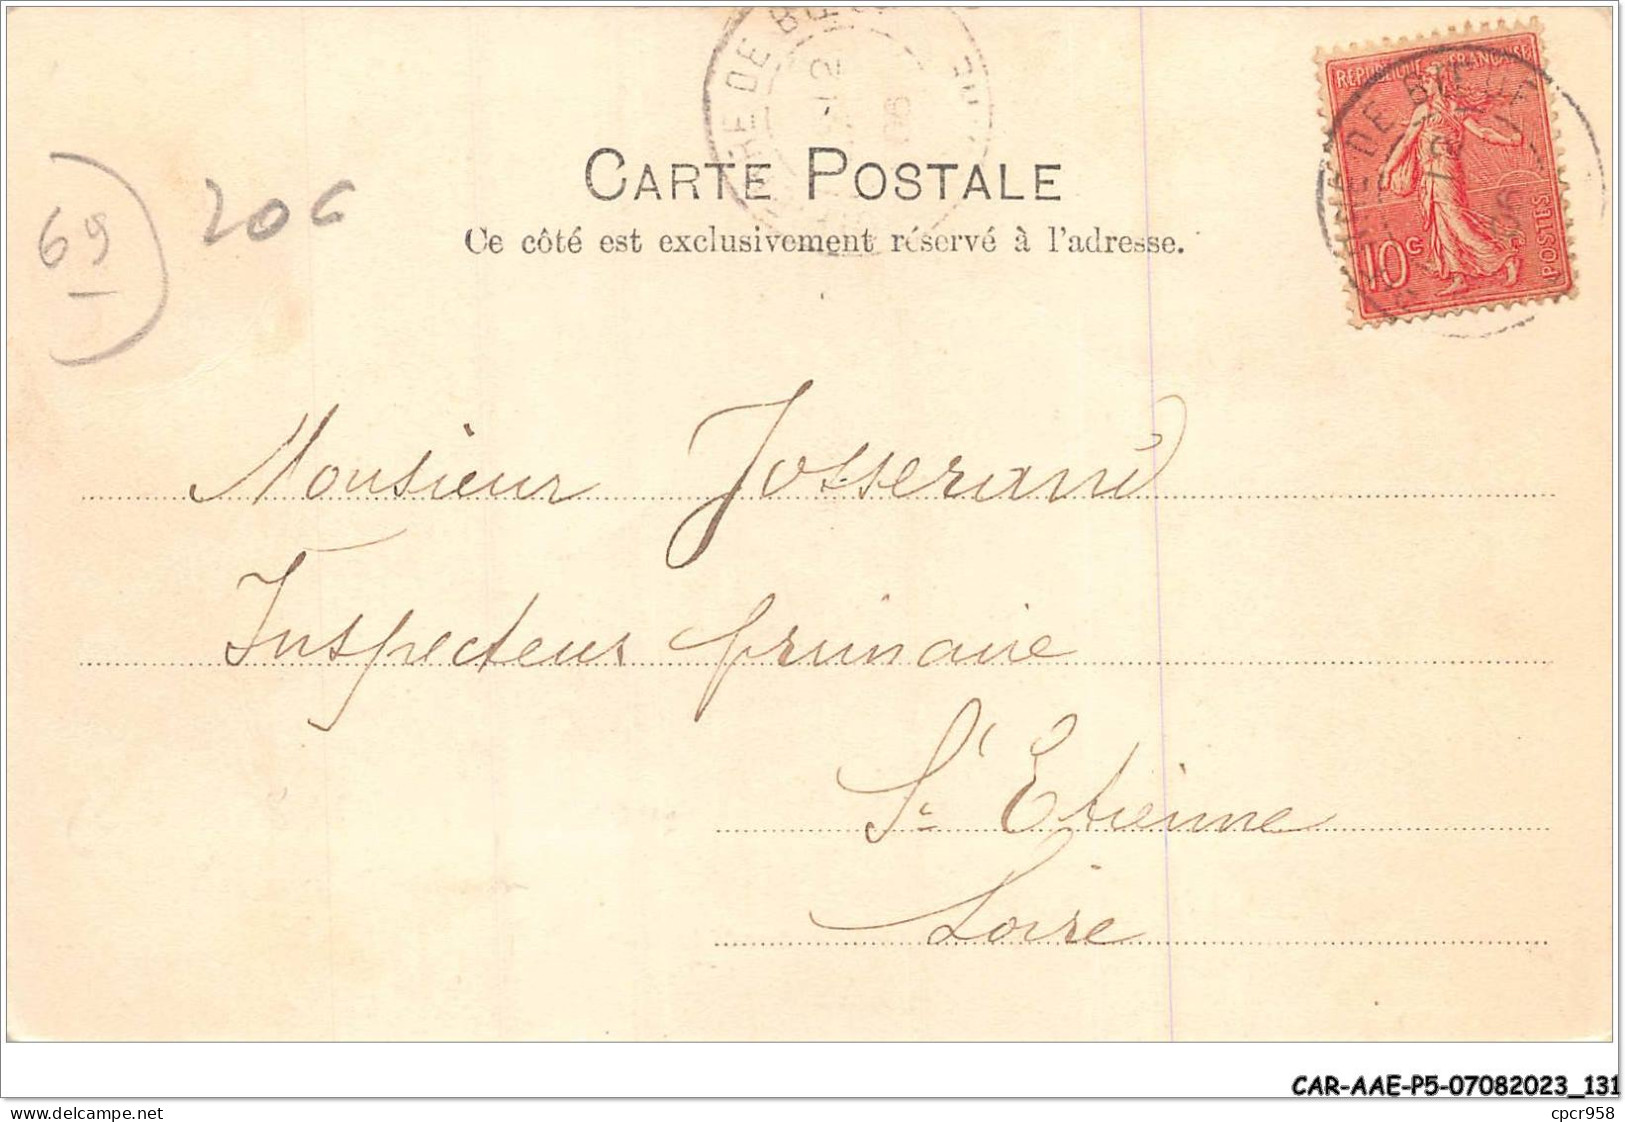 CARTE POSTALE
Ce côté est exclusivement réservé à l'adresse.
RÉPUBLIQUE FRANÇAISE
10c
POSTES
69
20c
Monsieur Josserand
Inspecteur primaire
St Etienne
Loire
CAR-AAE-P5-07082023_131
www.delcampe.net
cpcr958